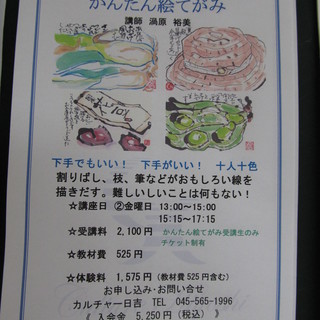 かんたん絵てがみ
講師 渦原 裕美
下手でもいい！ 下手がいい！ 十人十色
割りばし、枝、筆などがおもしろい線を
描きだす。難しいしいことは何もない！
☆講座日 ②金曜日 13:00〜15:00
15:15〜17:15
☆受講料 2,100 円 ☆かんたん絵てがみ受講生のみ
チケット制有
☆教材費 525円
☆体験料 1,575 円（教材費 525 円含む）
お申し込み･お問い合せ
カルチャー日吉 TEL 045-565-1996
《 入会金 5,250 円（税込）